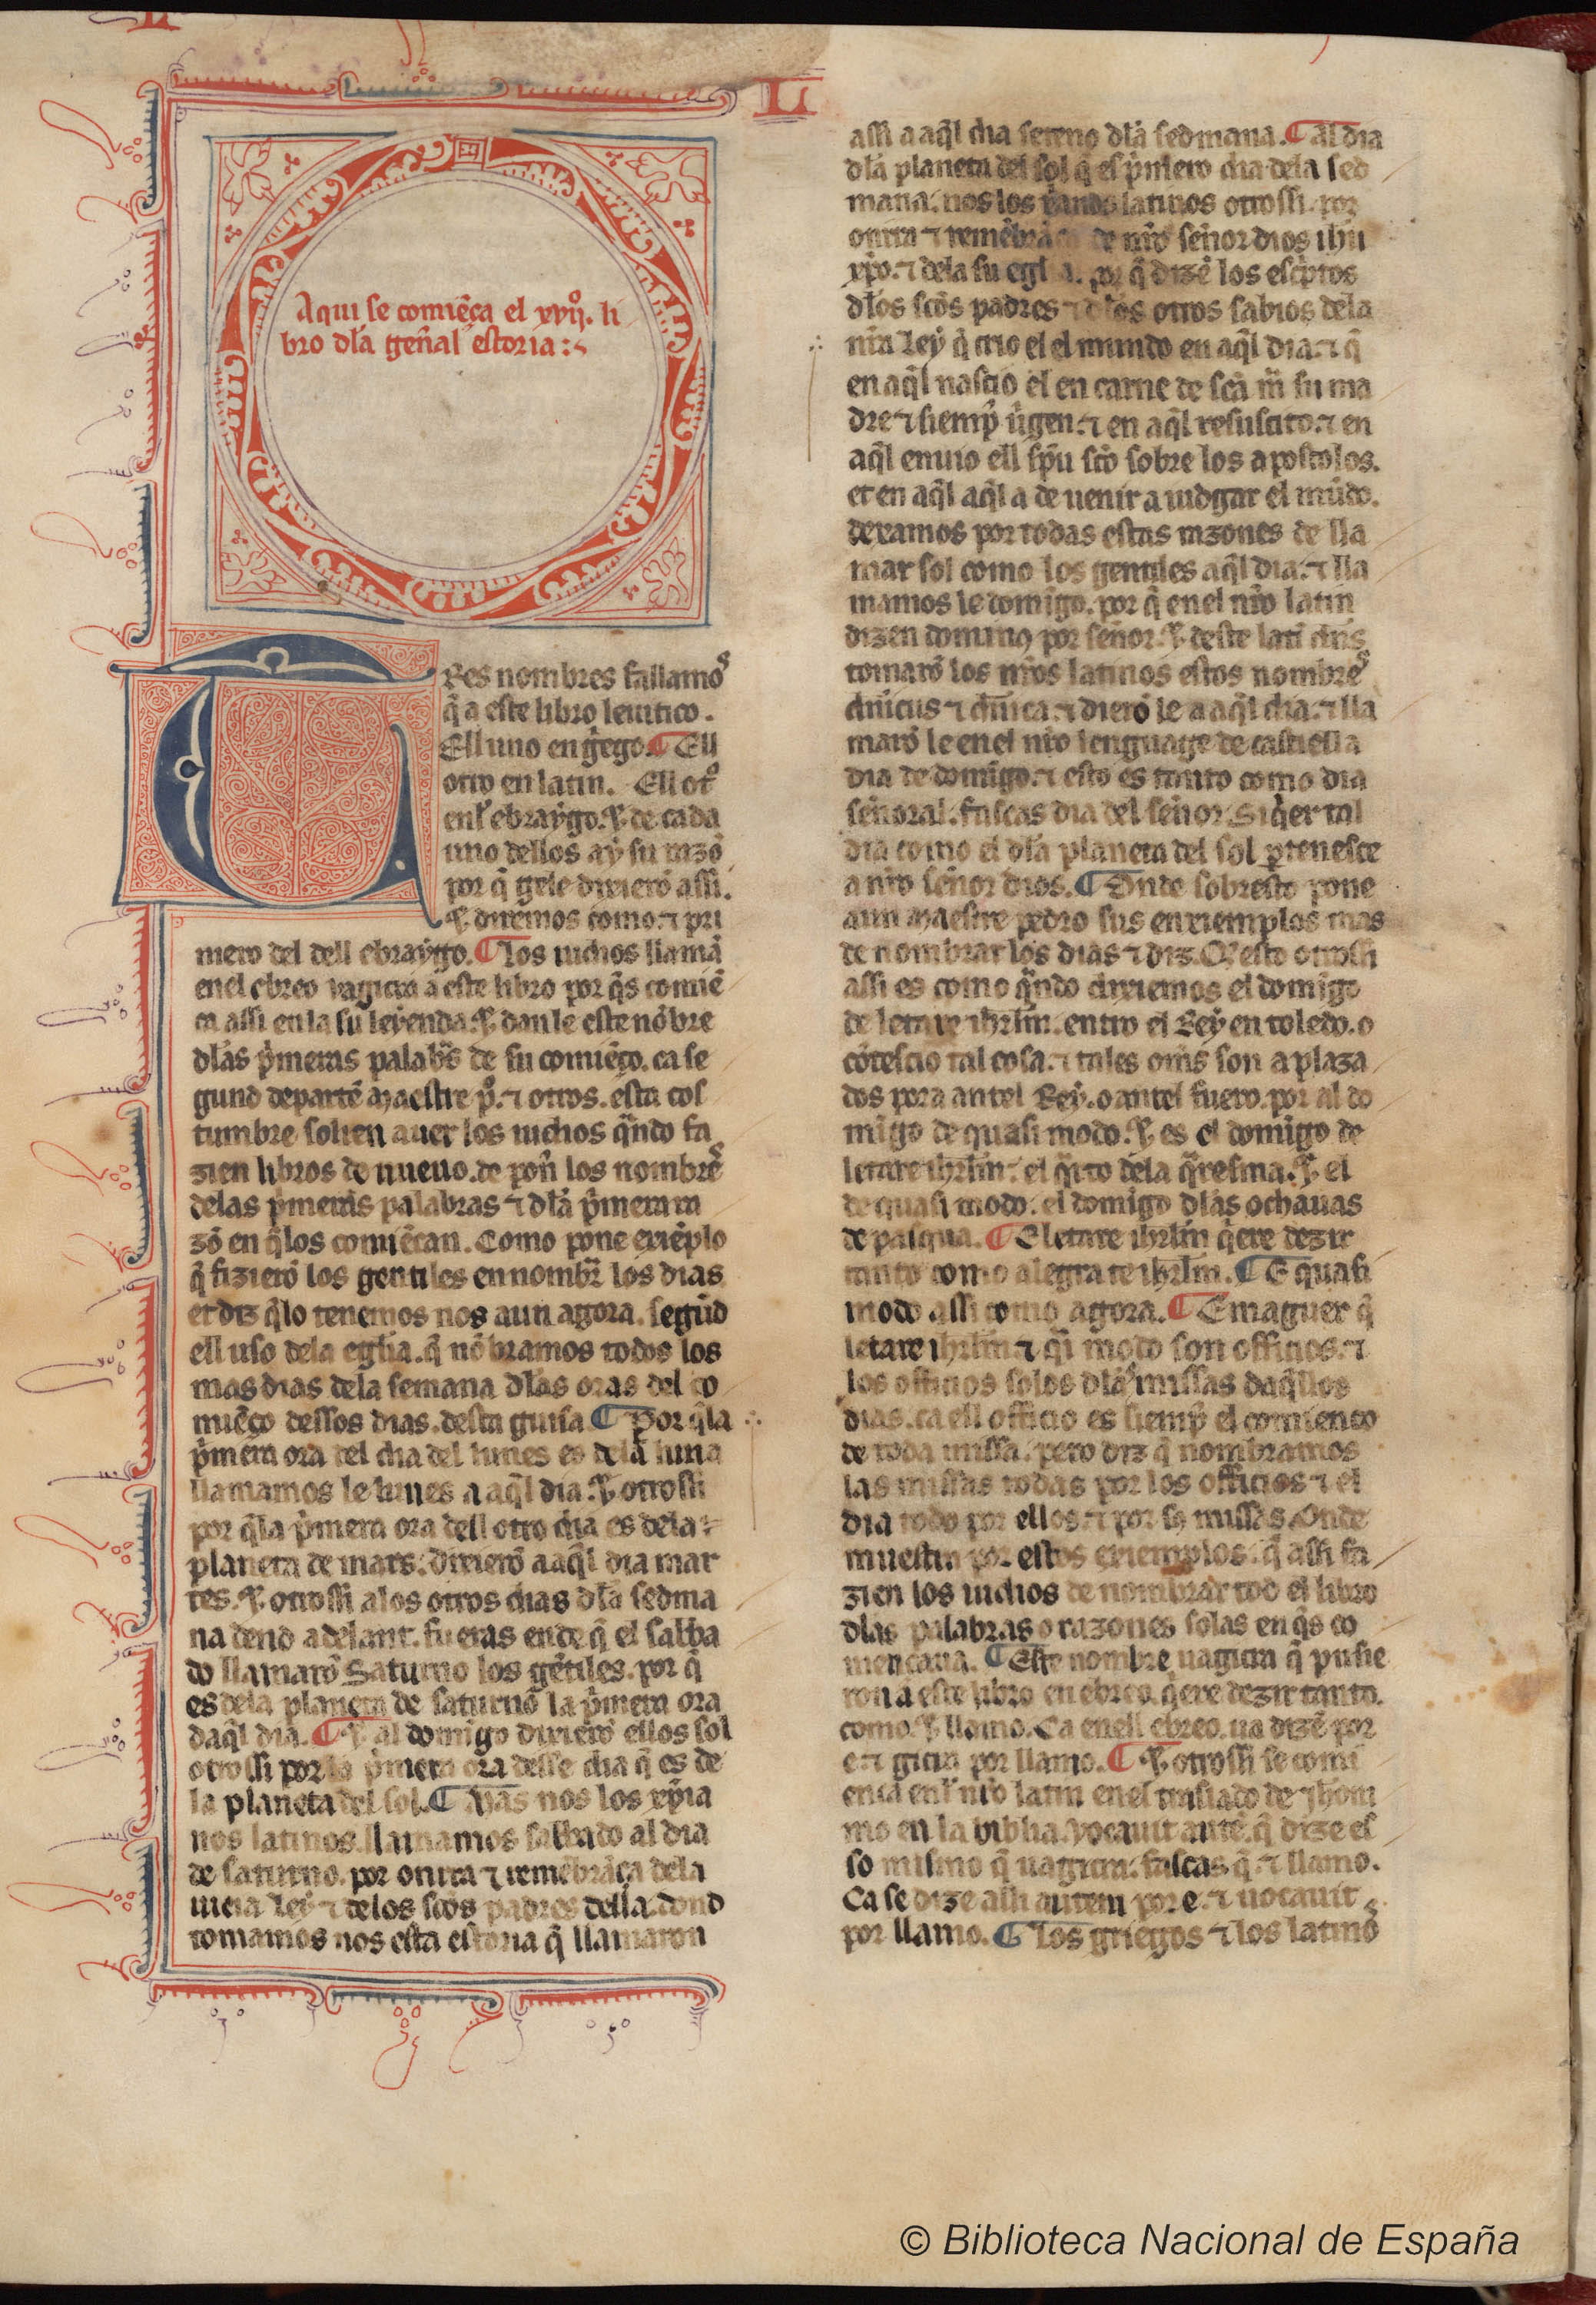 L
Aqui se comiẽça el xvijº. li
bro dła geñal estoria:
TRes nombres fallamos
q̃ a este libro leuitico.
Ell uno en g̃ego. ¶ Ell
otro en latin. Ell otº
enł ebraygo. ⁊ de cada
uno dellos ay su razõ
por q̃ gele dixierõ assi.
⁊ diremos como. ⁊ pri
mero del dell ebraygo. ¶ Los iudios llamã
en el ebreo vagicra a este libro por q̃s comiẽ
ça assi en la su leyenda. ⁊ danle este nõbre
dłas p̃meras palabr̃s de su comiẽço. ca se
gund departẽ maestre p̃º. ⁊ otros. esta cos
tumbre solien auer los iudios q̃ndo fa
zien libros de nueuo. de poñ los nombres
delas p̃meras palabras ⁊ dła p̃mera ra
zõ en q̃ los comiẽçan. Como pone exiẽplo
q̃ fizierõ los gentiles en nombr̃ los dias
et diz q̃ lo tenemos nos aun agora. segũd
ell uso dela eglia. q̃ nõbramos todos los
mas dias dela semana dłas oras del co
miẽço dessos dias. desta guisa ¶ Por q̃ la
p̃mera ora del dia del lunes es dela luna
llamamos le lunes a aq̃l dia. ⁊ otrossi
por q̃ la p̃mera ora dell otro dia es dela
planeta de mars. dixierõ a aq̃l dia mar
tes. ⁊ otrossi a los otros dias dła sedma
na dend adelant. fueras ende q̃ el sabba
do llamarõ Saturno los gẽtiles. por q̃
es dela planeta de saturnõ la p̃mera ora
daq̃l dia. ¶ ⁊ al domĩgo dixierõ ellos sol
otrossi por la p̃mera ora desse dia q̃ es de
la planeta del sol. ¶ Mas nos los xp̃ia
nos latinos llamamos sabbado al dia
de saturno. por onrra ⁊ remẽbrãça dela
uieia Ley ⁊ delos scõs padres della. dond
tomamos nos esta estoria q̃ llamaron
assi a aq̃l dia seteno dła sedmana. ¶ Al dia
dła planeta del sol q̃ es p̃miero dia dela sed
mana. nos los xp̃ianos latinos otrossi. por
onrra ⁊ remẽbrãça de nr̃o señor dios ihũ
xp̃o. ⁊ dela su eglia. por q̃ dizẽ los esc̃ptos
dłos scõs padres ⁊ dłos otros sabios dela
nr̃a Ley q̃ crio el el mundo en aq̃l dia. ⁊ q̃
en aq̃l nascio el en carne de scã m̃ su ma
dre ⁊ siemp̃ ũgen. ⁊ en aq̃l resuscito. ⁊ en
aq̃l enuio ell sp̃u scõ sobre los apostolos.
et en aq̃l aq̃l a de uenir a iudgar el mũdo.
dexamos por todas estas razones de lla
mar sol como los gentiles aq̃l dia. ⁊ lla
mamos le domĩgo. por q̃ en el nr̃o latin
dizen dominꝯ por señor. ⁊ deste latĩ dñs
tomarõ los nr̃os latinos estos nombres
dñicus ⁊ dñica. ⁊ dierõ le a aq̃l dia. ⁊ lla
marõ le en el nr̃o lenguage de castiella
dia de domĩgo. ⁊ esto es tanto como dia
señoral. fascas dia del señor. Siq̃er tal
dia como el dła planeta del sol ꝑtenesce
a nr̃o señor dios. ¶ Onde sobresto pone
aun maestre pedro sus enxiemplos mas
de nombrar los dias ⁊ diz. Q̃ esto otrossi
assi es como q̃ndo dixiemos el domĩgo
de letare ihrl̃m. entro el Rey en toledo. o
cõtescio tal cosa. ⁊ tales om̃s son aplaza
dos pora antel Rey. o antel fuero. por al do
mĩgo de quasi modo. ⁊ es el domĩgo de
letare ihrl̃m. el q̃rto dela q̃resma. ⁊ el
de quasi modo. el domĩgo dłas ochauas
de pasqua. ¶ E letare ihrl̃m q̃ere dezir
tanto como alegrate ihrl̃m. ¶ E quasi
modo assi como agora. ¶ E maguer q̃
letare ihrl̃m ⁊ q̃si modo son officios. ⁊
los officios solos dłas missas daq̃llos
dias. ca ell officio es siemp̃ el comienço
de toda missa. pero diz q̃ nombramos
las missas todas por los officios ⁊ el
dia todo por ellos. ⁊ por sus missas. Onde
muestra por estos exiemplos. q̃ assi fa
zien los iudios de nombrar tod el libro
dłas palabras o razones solas en q̃s co
mençaua. ¶ Este nombre uagicra q̃ pusie
ron a este libro en ebreo. q̃ere dezir tanto.
como. ⁊ llamo. Ca en ell ebreo. ua dizẽ por
e. ⁊ gicra por llamo. ¶ ⁊ otrossi se comi
ença enł nr̃o latin en el traslado de Jhoni
mo en la biblia. vocauit autẽ. q̃ dize es
so mismo q̃ uagicra. fascas q̃. ⁊ llamo.
Ca se dize assi autem por e. ⁊ uocauit
por llamo. ¶ Los griegos ⁊ los latinos
© Biblioteca Nacional de España